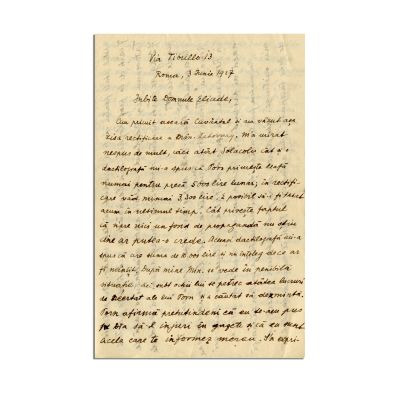 Via Tibullo 13
Roma, 3 Iunie 1927
Iubite Domnule Eliade,
Am primit aseară Cuvântul și am văzut așa
zisa rectificare a D-lui Mă mirat
nespus de mult, căci atât Solacolu cât și o
dactilografă mi-a spus că Porn primește leafă
numai pentru presă 5000 lire lunar; în rectifi-
care văd numai 3.300 lire. E posibil să-i fi
acum în ultimul timp. Cât privește faptul
că n'are nici un fond de propagandă nu știu
cine ar putea-o crede. Aceiași dactilografă mi-a
spus că are suma de 10.000 lire și nu înțeleg de ce ar
fi mințit. După mine Min. se vede în penibila
situație, de sub ochii lui se petrec atâtea lucruri
de Porn și a căutat să desmintă.
Porn afirmă pretutindeni că eu te-aș pus
pe Dta să-l înjuri în gazete și că eu sunt
acela care te informez mereu. S'a